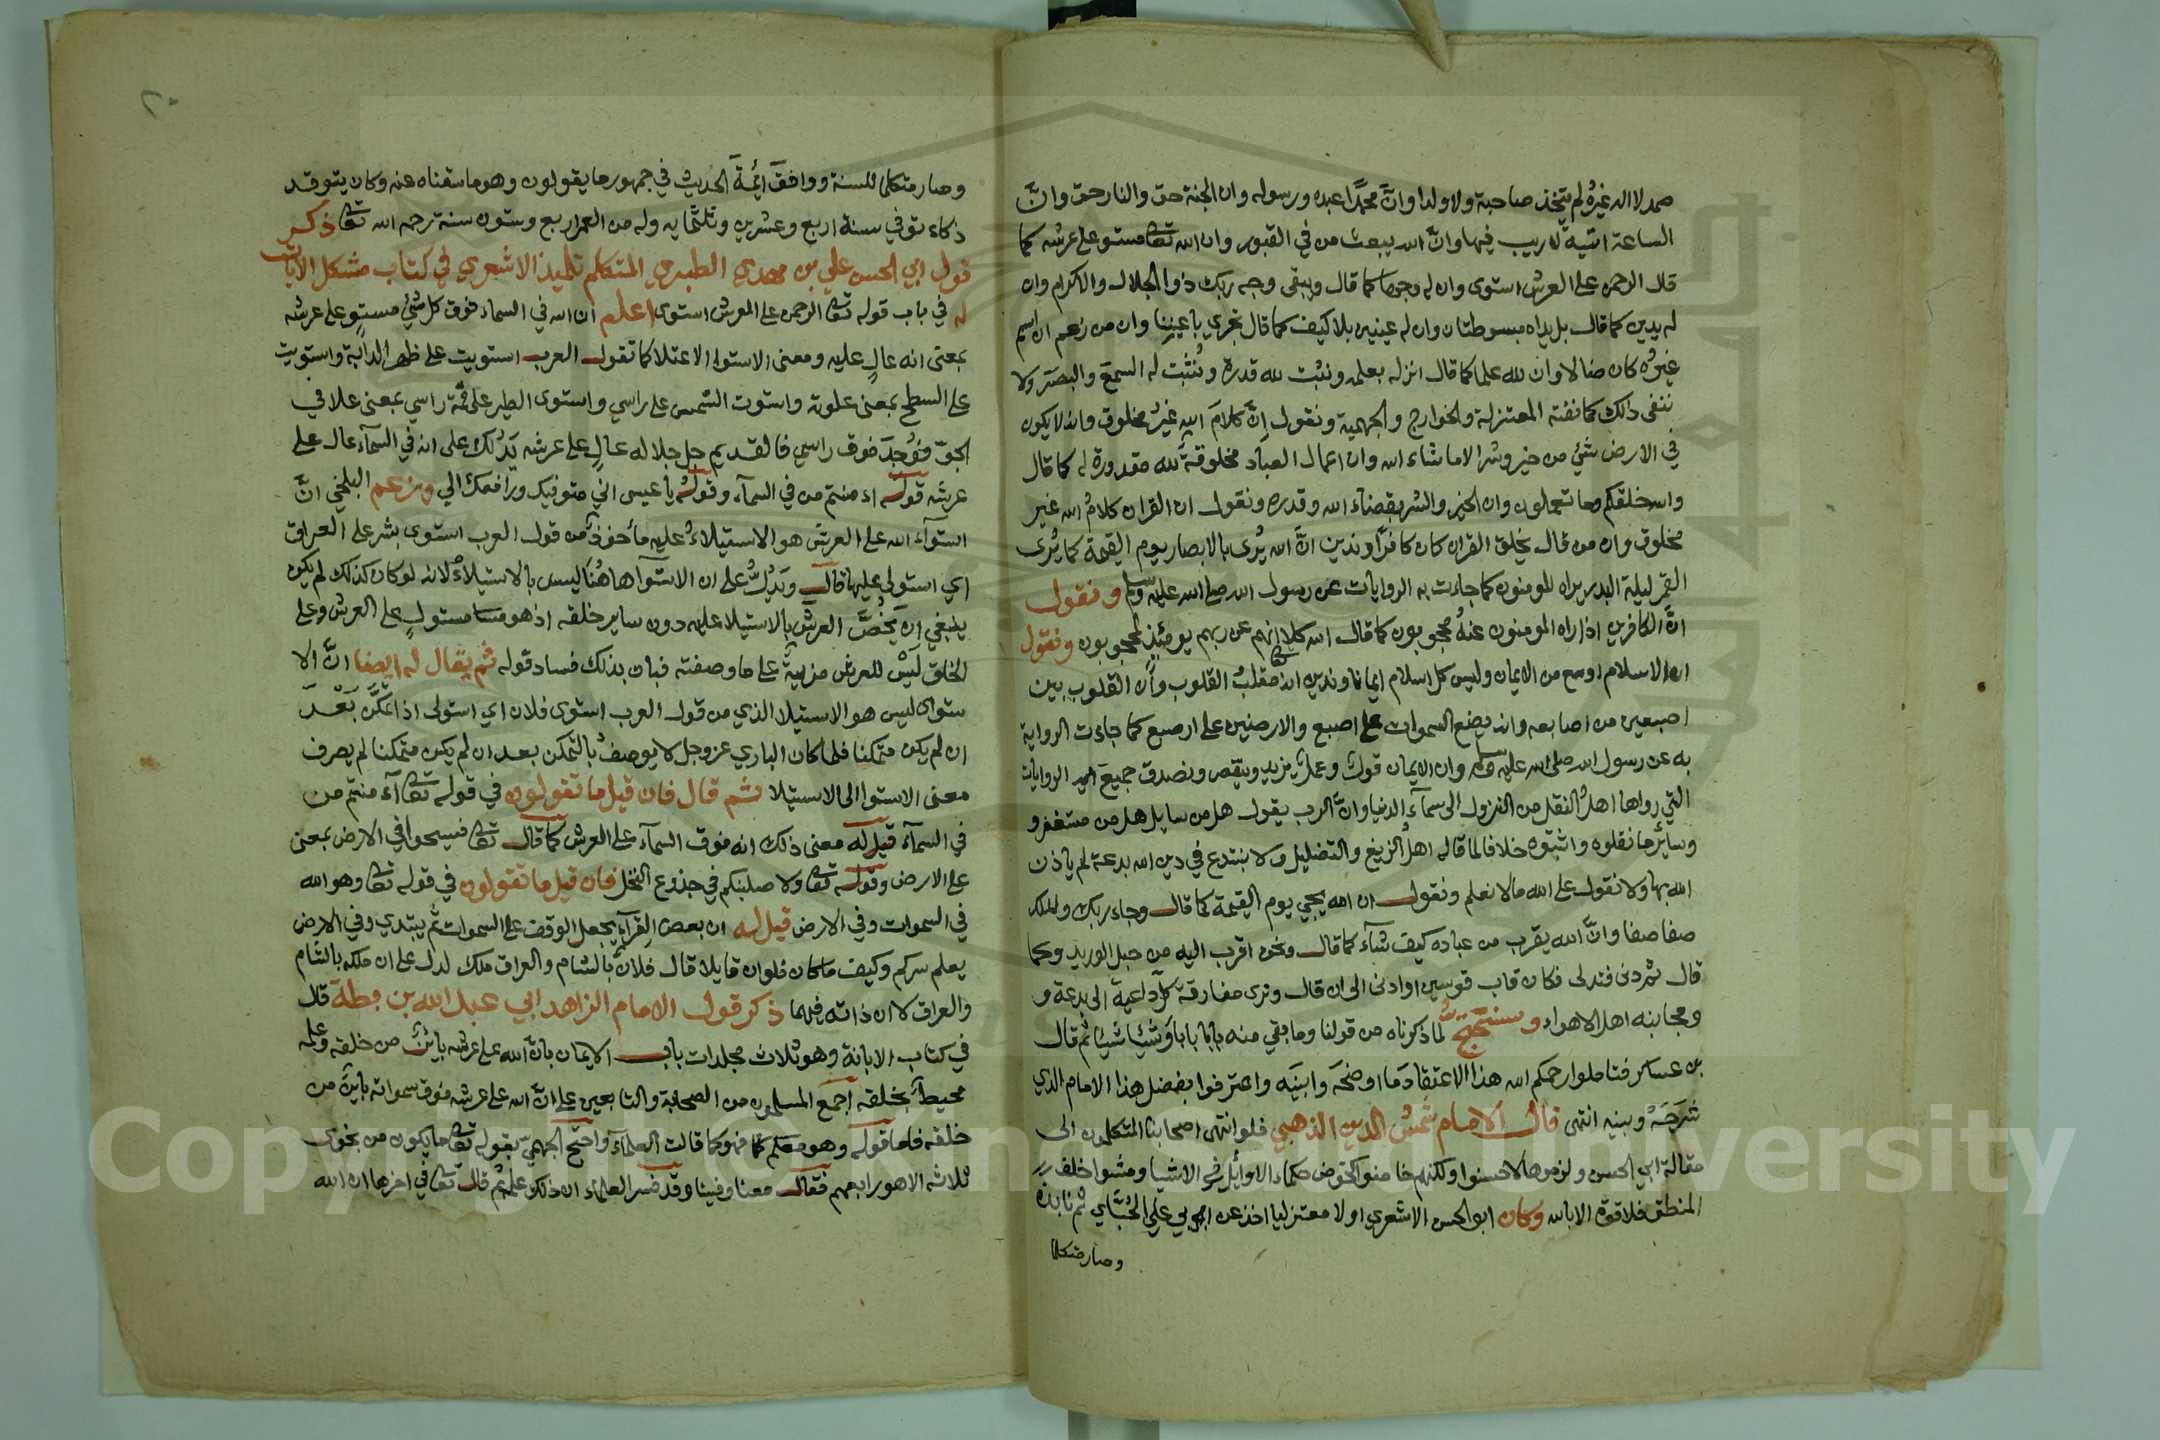 صمد لا اله غيره لم يتخذ صاحبة ولا ولدا وانَّ محمَّدا عبده ورسوله وان الجنة حق والنار حق وانَّ
الساعة اتية لا ريب فيها وانَّ الله يبعث من في القبور وان الله تعا مستو على عرشه كما
قال الرحمن على العرش استوى وان له وجها كما قال ويبقى وجه ربك ذو الجلال والاكرام وان
له يدين كما قال بل يداه مبسوطتان وان له عينين بلا كيف كما قال تجري باعيننا وان من زعم ان اسم
غيره كان ضالا وان لله علما كما قال انزله بعلمه ونثبت لله قدرة ونُثبت له السمعَ والبصَر ولا
ننفى ذلك كما نفته المعتزلة والخوارج والجهمية ونقول إنَّ كلامَ الله غيرُ مخلوق وانه لا يكون
في الارض شيء من خير وشر الا ما شاء الله وان اعمال العباد مخلوقةٌ لله مقدورة له كما قال
والله خلقكم وما تعملون وان الخير والشر بقضاء الله وقدره ونقول ان القران كلامُ الله غير
مخلوق وان من قال بخلق القران كان كافرًا وندين انَّ الله يُرى بالابصار يوم القيمة كما يُرى
القمر ليلة البدر يراه المومنون كما جاءت به الروايات عن رسول الله صلى الله عليه وسلم ونقول
انَّ الكافرين اذا راه المومنون عنهُ محجوبون كما قال الله كلا انهم عن ربهم يومئذٍ لمحجوبون ونقول
ان الاسلام اوسع من الايمان وليس كل اسلام ايمانا وندين انه مقلبُ القلوب وأن القلوب بين
اصبعين من اصابعه وانه يضع السموات على اصبع والارضين على اصبع كما جاءت الرواية
به عن رسول الله صلى الله عليه وسلم وان الايمان قول وعمل يزيد وينقص ونصدق جميع الروايات
التي رواها اهلُ النقل من النزول الى سماء الدنيا وانَّ الرب يقول هل من سايل هل من مستغفر و
وسائر ما نقلوه واثبتوه خلافا لما قاله اهل الزيغ والتضليل ولا نبتدع في دين الله بدعة لم ياذن
الله بها ولا نقول على الله مالا نعلم ونقول ان الله يجي يوم القيمة كما قال وجاء ربك والملك
صفا صفا وانَّ الله يقرب من عباده كيف شآء كما قال ونحن اقرب اليه من حبل الوريد وكما
قال ثم دنى فتدلى فكان قاب قوسين او ادنى الى ان قال ونرى مفارقة كلّ داعية الى بدعة و
ومجانبه اهل الاهواء وسنحتجّ لما ذكرناه من قولنا وما بقي منه بابا بابا وشيئا شيئا ثم قال
بن عساكر فتاملوا رحمكم الله هذا الاعتقاد ما اوضحَه وابينَه واعترفوا بفضل هذا الامام الذي
شرحَهُ وبينه انتهى قال الامام شمسُ الدين الذهبي فلو انتهى اصحابنا المتكلمون الى
مقالة ابي الحسن ولزموها لاحسنوا ولكنهم خاضوا كخوض حكماء الاوائل في الاشيا ومشوا خلف
المنطق فلا قوة الا بالله وكان ابو الحسن الاشعري اولا معتزليا اخذ عن ابي علي الجُبَّاي ثم نابذهُ
وصار متكلما
٢٠
وصار متكلما للسنة ووافقَ أئمةَ الحديث في جمهور ما يقولون وهو ما سقناه عنه وكان يتوقد
ذكاء توفي سنة اربع وعشرين وثلثماية وله من العمر اربع وستون سنة رحمه الله تعا ذكر
قول ابي الحسن علي بن مهدي الطبري المتكلم تلميذ الاشعري في كتاب مشكل الايات
له في باب قوله تعا الرحمن على العرش استوى اعلم ان الله في السماء فوق كل شيء مستوٍ على عرشه
بمعنى انه عالٍ عليه ومعنى الاستوا الاعتلا كما تقول العرب استويت على ظهر الدابة واستويت
على السطح بمعنى علوته واستوت الشمس على راسي واستوى الطير على قمّة راسي بمعنى علا في
الجوّ فوُجدَ فوق راسي فالقديم جل جلاله عالٍ على عرشه يَدُلك على انه في السمآء عال على
عرشه قوله اامنتم من في السمآء وقوله يا عيسى اني متوفيك ورافعك الي وزعم البلخي انَّ
استوآء الله على العرش هو الاستيلاءُ عليه مأخوذٌ من قول العرب استوى بشر على العراق
اي استولى عليها قال ويَدُلُّ على ان الاستوا هاهُنا ليس بالاستيلاء لانه لو كان كذلك لم يكن
ينبغي ان يَخُصَّ العرش بالاستيلا عليه دون ساير خلقه اذ هو مستولٍ على العرش وعلى
الخلق لَيْسَ للعرش مزيةٌ على ما وصفته فبان بذلك فساد قوله ثم يقال له ايضا انَّ الا
ستوا ليس هو الاستيلا الذي من قول العرب استوى فلان اي استولى اذا تمكَّن بَعْدَ
ان لم يكن متمكنا فلما كان الباري عز وجل لا يوصفُ بالتمكن بعد ان لم يكن متمكنا لم يصرف
معنى الاستوا الى الاستيلا ثم قال فان قيل ما تقولون في قوله تعا أآمنتم من
في السمآء قيل له معنى ذلك انه فوق السمآء على العرش كما قال تعا فسيحوا في الارض بمعنى
على الارض وقوله تعا ولاصلبنكم في جذوع النخل فان قيل ما تقولون في قوله تعا وهو الله
في السموات وفي الارض قيل له ان بعض القرآء يجعل الوقف على السموات ثم يبتدي وفي الارض
يعلم سركم وكيف ما كان فلو ان قايلا قال فلانٌ بالشام والعراق ملك لدل على ان ملكه بالشام
والعراق لا ان ذاته فيهما ذكر قول الامام الزاهد ابي عبد الله بن بطة قال
في كتاب الابانة وهو ثلاث مجلدات باب الايمان بانَّ الله على عرشه باينٌ من خلقه وعلمه
محيطٌ بخلقه اجمَع المسلمون من الصحابة والتابعين على انَّ الله على عرشه فوق سمواته باينٌ من
خلقه فاما قوله وهو معكم فهو كما قالت العلمآء واحتج الجهميّ بقوله تعا ما يكون من نجوى
ثلاثه الا هو رابعهم فقال معنا وفينا وقد فسر العلماء ان ذلك علمه ثم قال تعا في اخرها ان الله